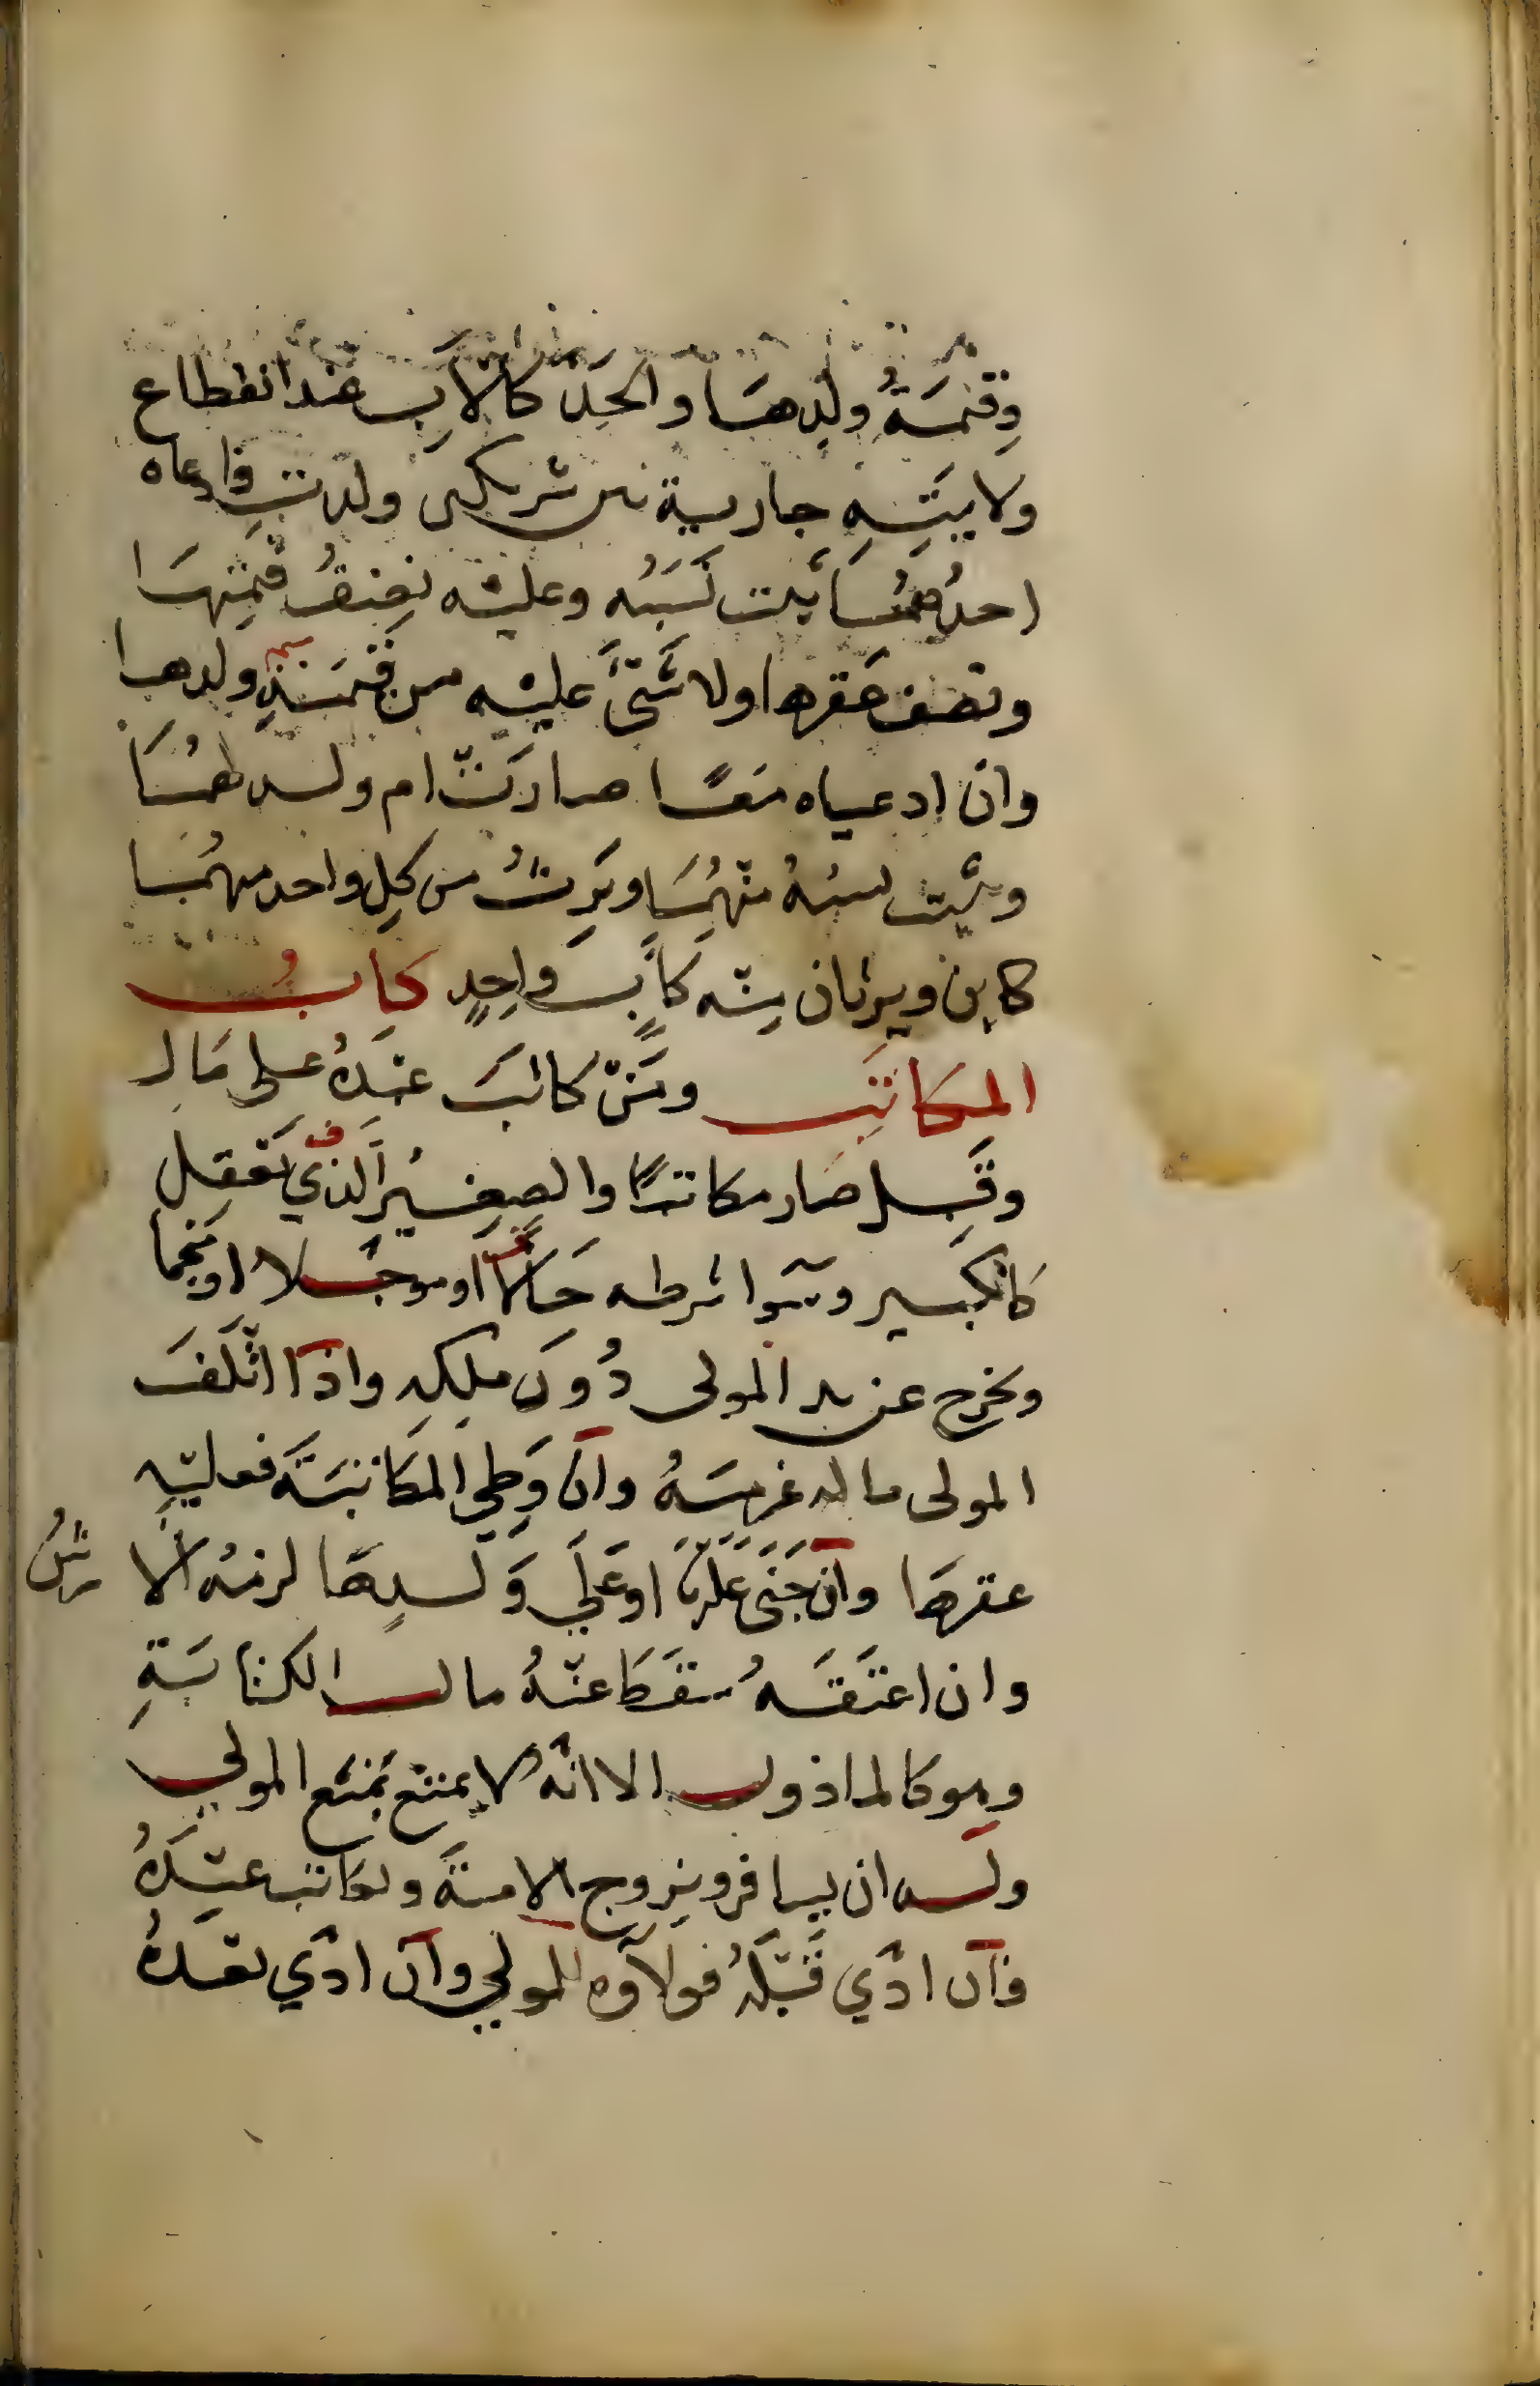 وقيمَةُ ولدِهَا والجَدّ كالأبِ عندَ انقطاع
ولايتِهِ جارية بين شريكين ولدتْ فادعاه
احدُهُمَا ثبت نَسَبُه وعليْه نِصْفُ قيمتِهَا
ونصف عَقرها ولا شَئَ عليْه من قيمَةِ ولدها
وان ادعياه مَعًا صارَتْ ام ولد لهُمَا
ويثبت نسبهُ منهُمَا ويَرِثُ من كلِ واحد منهمَا
كابن ويرثان منه كأبٍ واحِدٍ كتابُ
المكاتَبِ ومَنْ كاتبَ عبْدَهُ على مَالٍ
وقَبِل صَار مكاتبًا والصغِيْر الَّذي يَعْقِل
كالكبير وسَوا شرطه حَالاً او موجَّلا او منجما
ويخرج عن يد المولى دُونَ مِلكِهِ واذا اتْلَفَ
المولى ماله غرمَهُ وان وَطِي المكَاتبَةَ فعليْهِ
عقرهَا وان جَنَى عليْهَا او عَلَي وَلَدِهَا لزمهُ الارشُ
وان اعتَقَهُ سَقَطَ عنْهُ مال الكتابَةِ
وهو كالماذون الا انَّه لا يمتنع بمَنْع المولي
وله ان يسافر ويزوج الامَةَ ويكاتب عبْدَهُ
فان ادّي قَبْلَهُ فولآوه للمولي وان ادّي بعْدَهُ